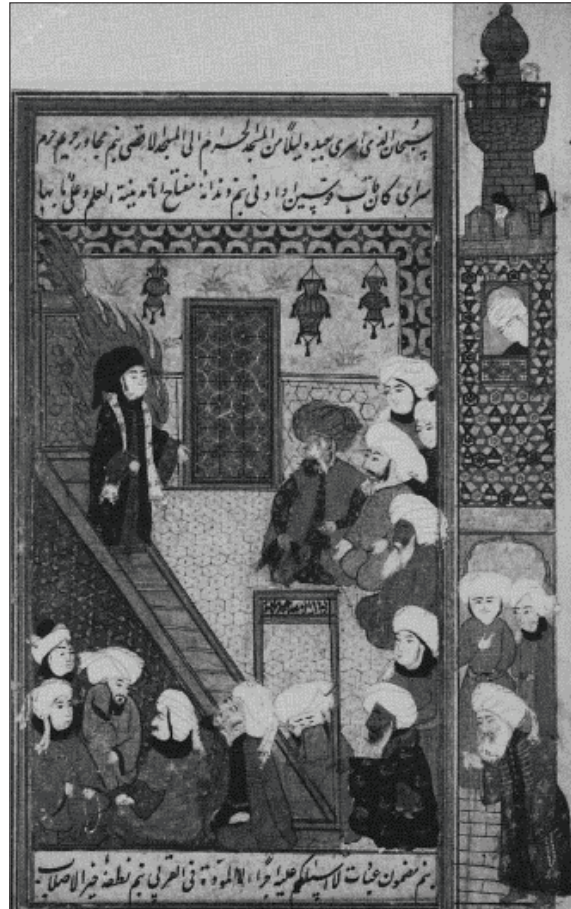 سبحان الذی اسری بعبده لیلاً من المسجد الحرام الی المسجد الاقصی بنم مجاور حریم حرم
سرای کان قاب قوسین او ادنی بنم دندانهٔ مفتاح انا مدینة العلم وعلی بابها
بنم مضمون عنایت لا اسئلکم علیه اجراً الا المودة فی القربی بنم نطفهٔ خیر الاصلاب